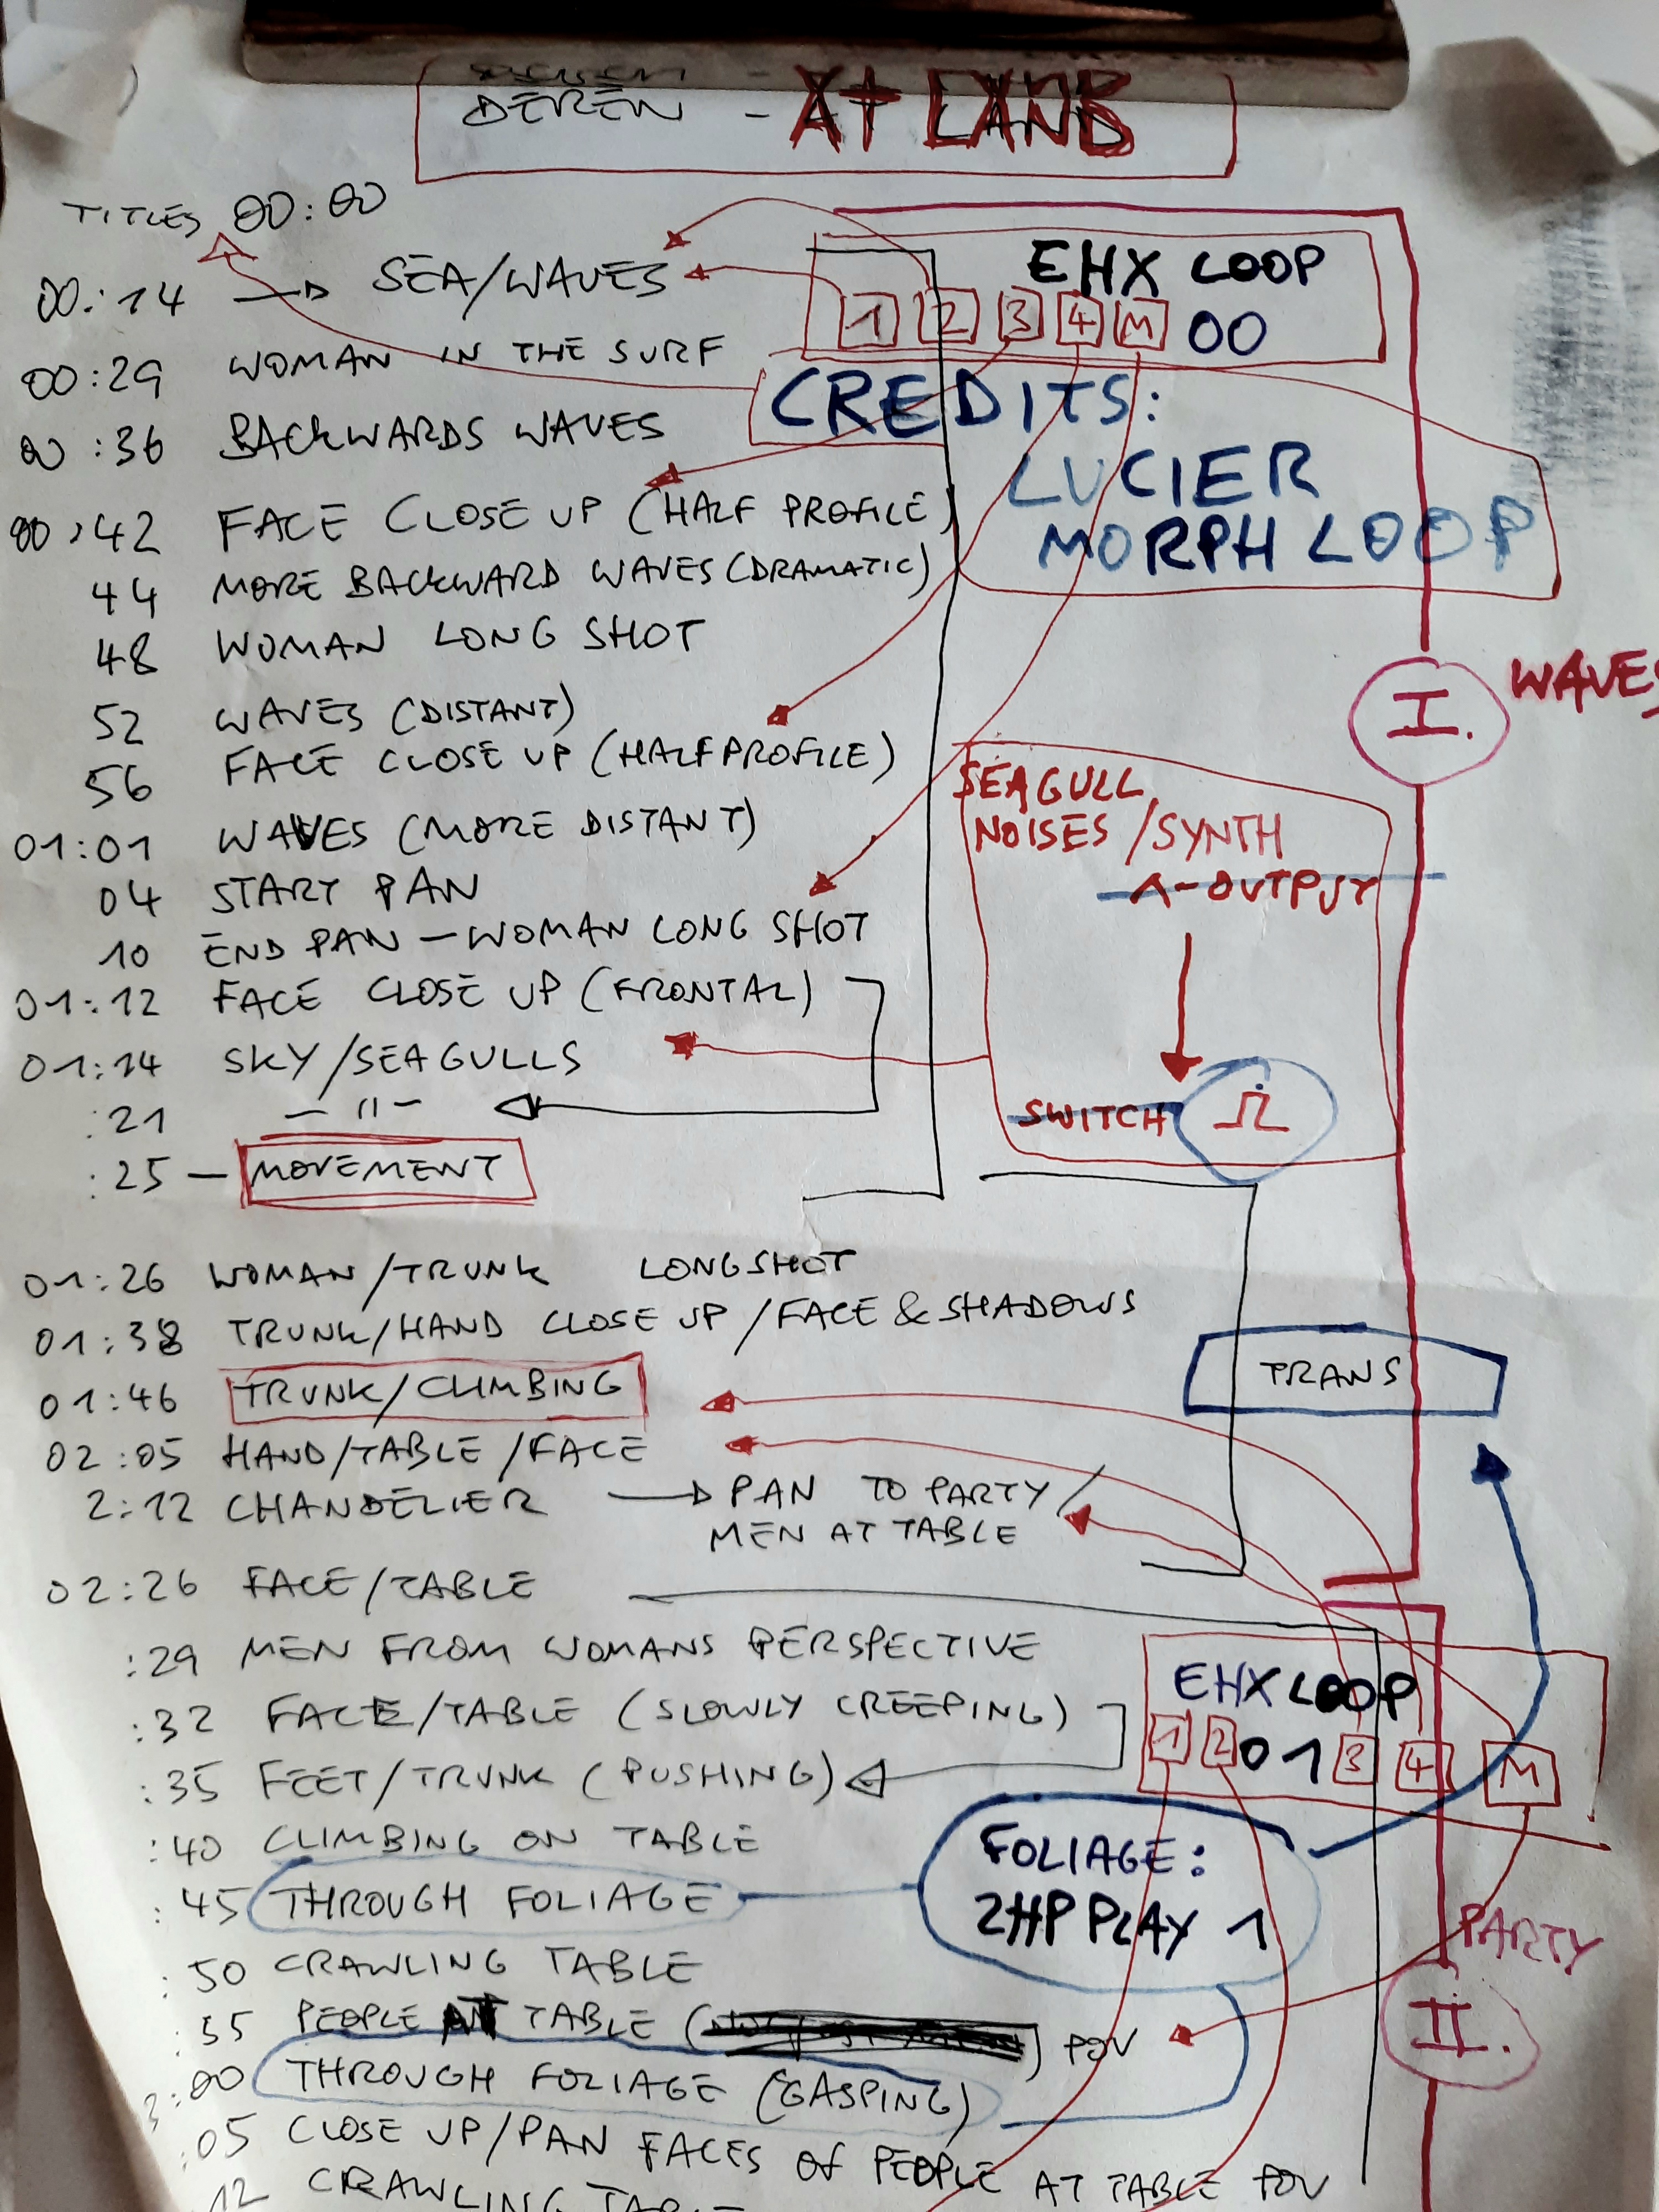 DEREN - AT LAND
TITLES 00:00
00:14 → SEA/WAVES
00:29 WOMAN IN THE SURF
00:36 BACKWARDS WAVES
00:42 FACE CLOSE UP (HALF PROFILE)
44 MORE BACKWARD WAVES (DRAMATIC)
48 WOMAN LONG SHOT
52 WAVES (DISTANT)
56 FACE CLOSE UP (HALFPROFILE)
01:01 WAVES (MORE DISTANT)
04 START PAN
10 END PAN - WOMAN LONG SHOT
01:12 FACE CLOSE UP (FRONTAL)
01:14 SKY/SEAGULLS
:21 - 11 -
:25 - MOVEMENT
01:26 WOMAN/TRUNK LONGSHOT
01:38 TRUNK/HAND CLOSE UP/FACE & SHADOWS
01:46 TRUNK/CLIMBING
02:05 HAND/TABLE/FACE
2:12 CHANDELIER → PAN TO PARTY/
MEN AT TABLE
02:26 FACE/TABLE
:29 MEN FROM WOMANS PERSPECTIVE
:32 FACE/TABLE (SLOWLY CREEPING)
:35 FEET/TRUNK (PUSHING)
:40 CLIMBING ON TABLE
:45 THROUGH FOLIAGE
:50 CRAWLING TABLE
:55 PEOPLE AT TABLE ( ) POV
3:00 THROUGH FOLIAGE (GASPING)
:05 CLOSE UP/PAN FACES OF PEOPLE AT TABLE POV
12 CRAWLING TABLE
EHX LOOP
1 2 3 4 M 00
CREDITS:
LUCIER
MORPH LOOP
I. WAVES
SEAGULL
NOISES/SYNTH
A-OUTPUT
SWITCH
TRANS
EHX LOOP
1 2 01 3 4 M
FOLIAGE:
2HP PLAY 1
PARTY
II.